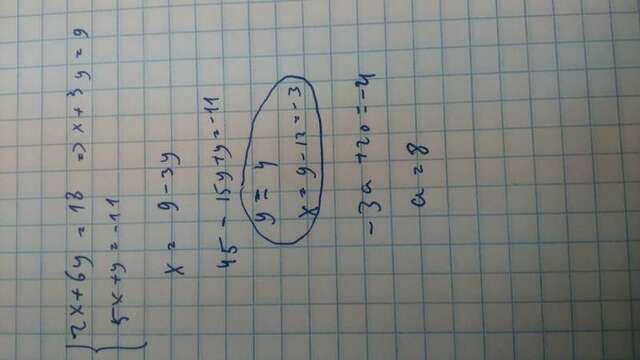 { 2x+6y = 18 => x+3y = 9
5x+y = -11
x = 9-3y
45 - 15y+y = -11
y = 4
x = 9-12 = -3
-3a +20 = -4
a = 8